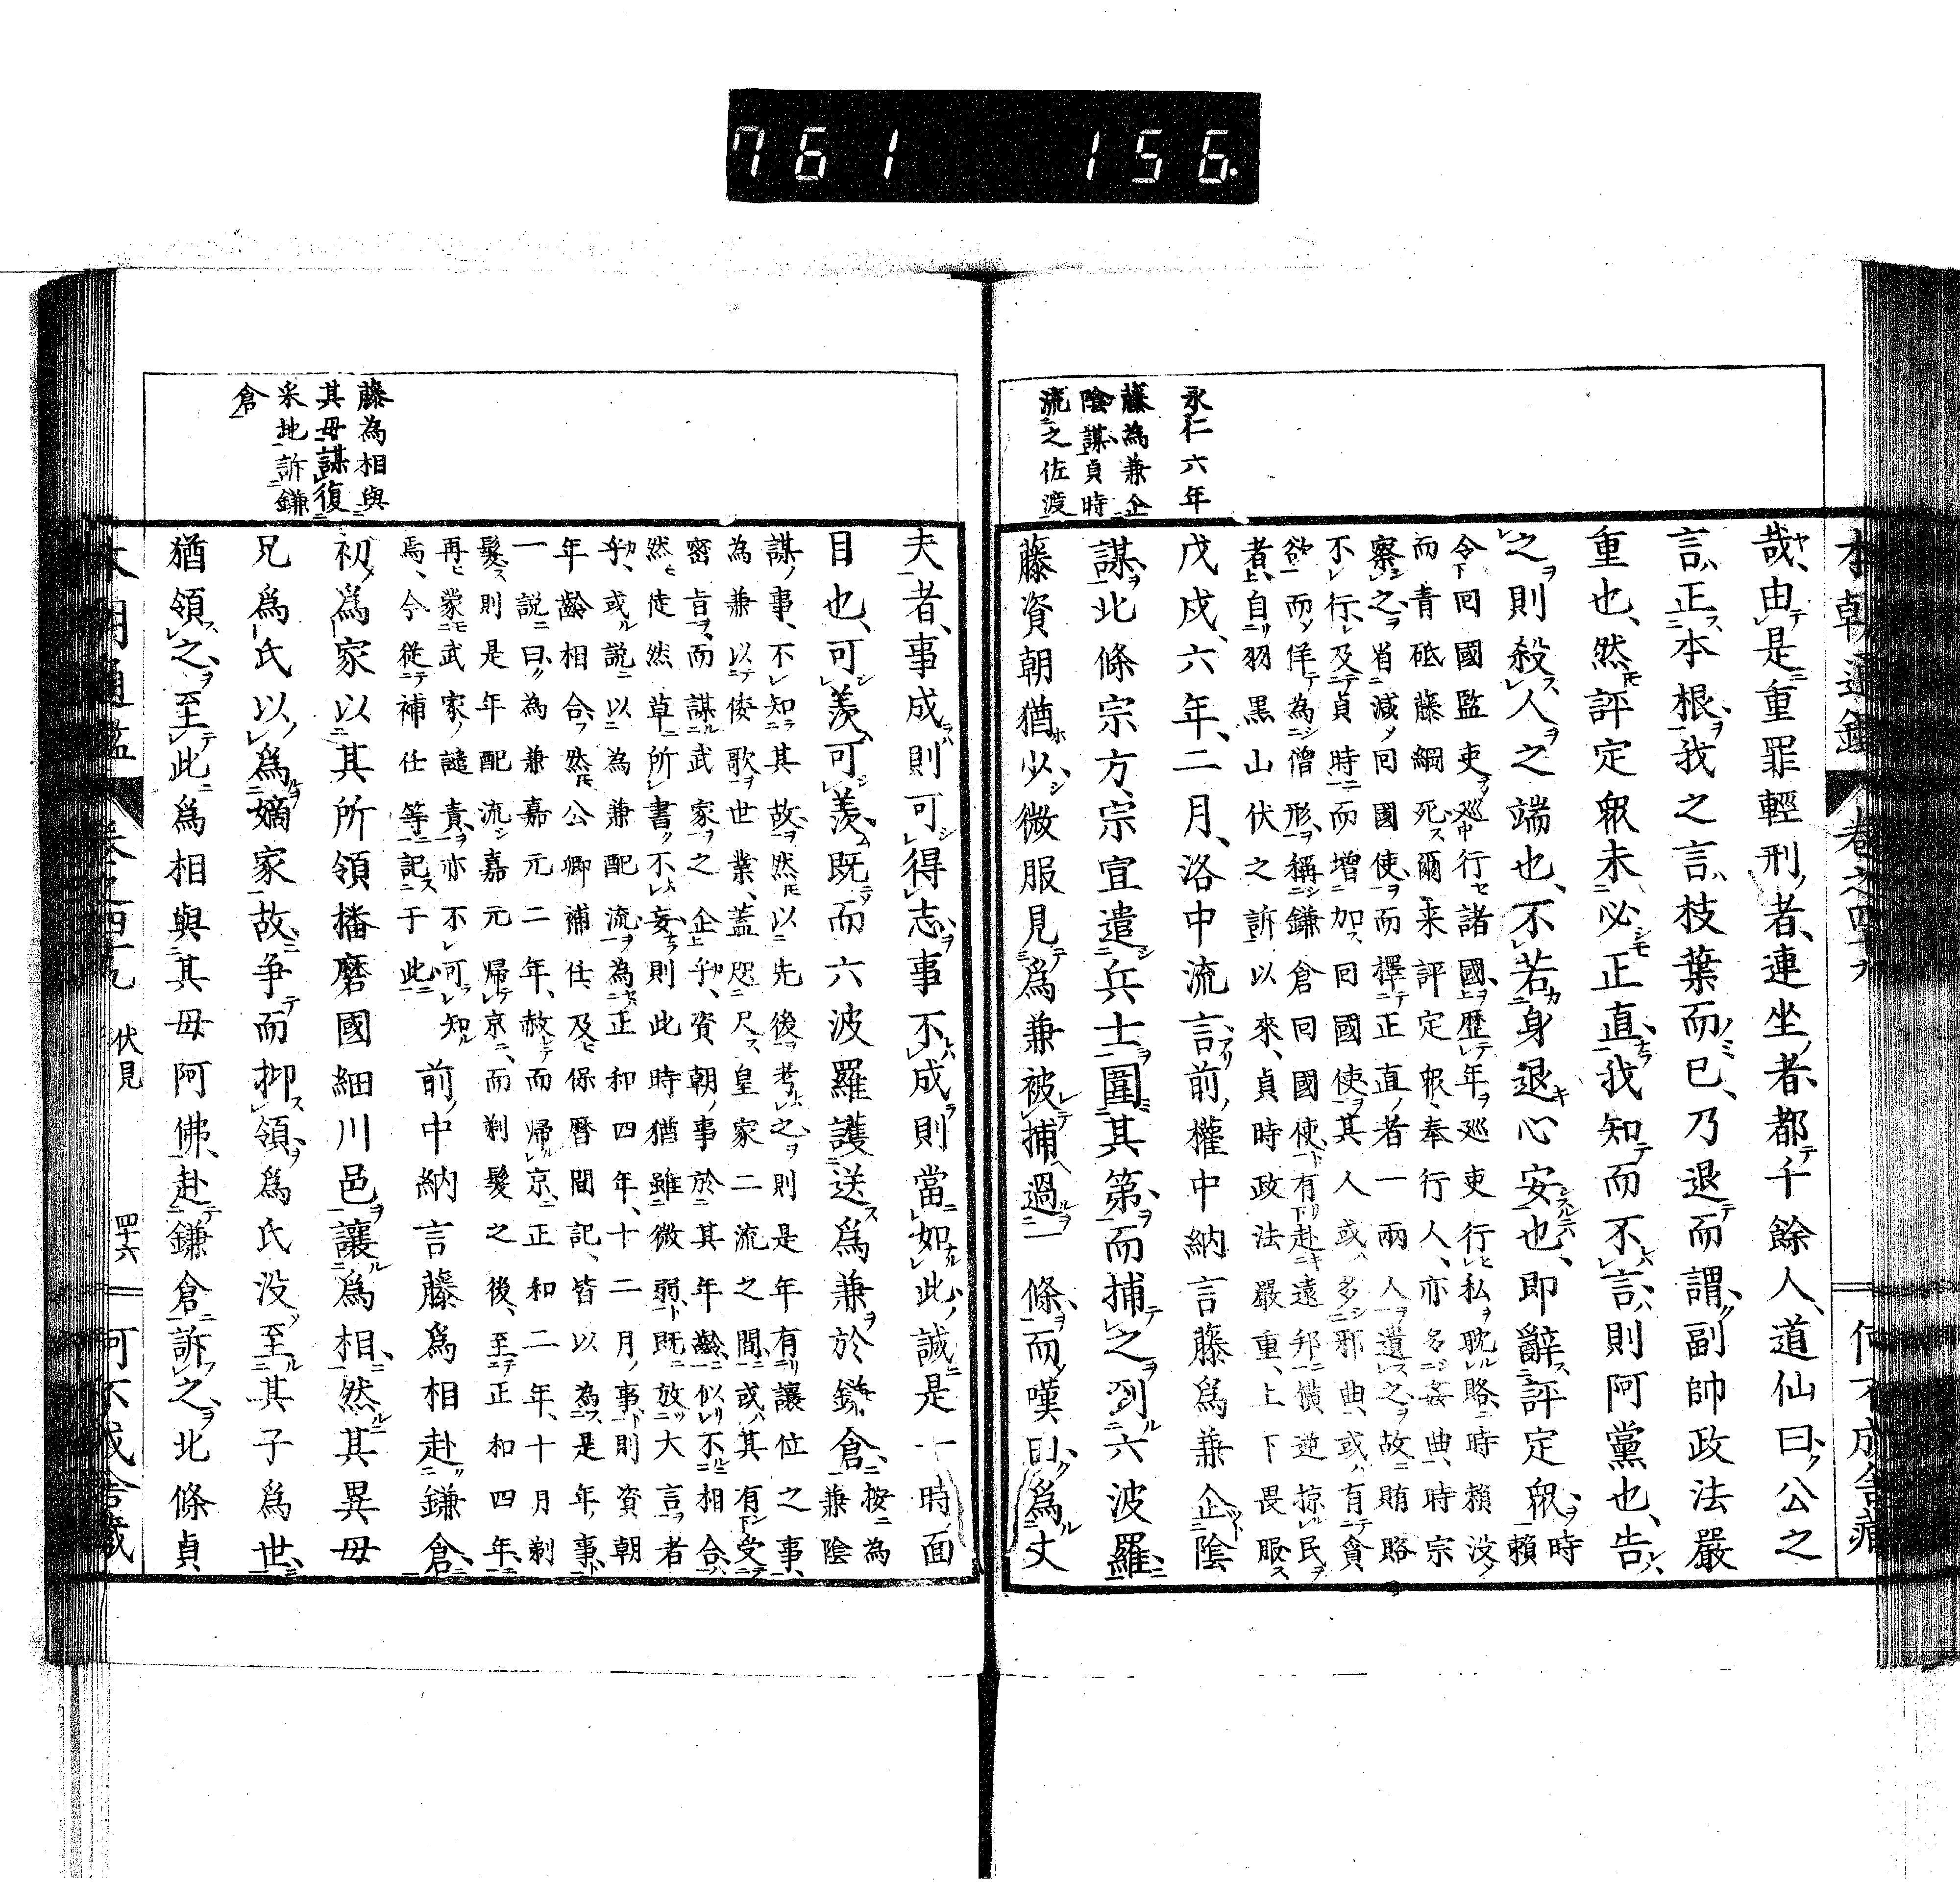 761 156
本朝通鑑 卷之四十九
何不成舍藏
永仁六年
藤為兼企
陰謀貞時
流之佐渡
哉由是重罪輕刑者連坐者都千餘人道仙曰公之
言正本根我之言枝葉而已乃退而謂副帥政法嚴
重也然評定衆未必正直我知而不言則阿黨也告
之則殺人之端也不若身退心安也即辭評定衆時賴
令回國監吏巡行諸國歷年巡吏行私耽賂時賴没
而青砥藤綱死爾来評定衆奉行人亦多姦曲時宗
察之省減回國使而擇正直者一兩人遣之故賄賂
不行及貞時而增加回國使其人或多邪曲或有貪
欲而佯為僧形稱鎌倉回國使有赴遠邦横逆掠民
者自羽黒山伏之訴以來貞時政法嚴重上下畏服
戊戌六年二月洛中流言前權中納言藤爲兼企陰
謀北條宗方宗宣遣兵士圍其第而捕之到六波羅
藤資朝猶以微服見爲兼被捕過一條而嘆曰爲丈
夫者事成則可得志事不成則當如此誠是一時面
目也可羨可羨既而六波羅護送爲兼於鎌倉按為兼陰
謀事不知其故然以先後考之則是年有讓位之事
為兼以倭歌世業盖咫尺皇家二流之間或其有受
密旨而謀武家之企乎資朝事於其年齡似不相合
然徒然草所書不妄則此時猶雖微弱既放大言者
乎或說以為兼配流為正和四年十二月事則資朝
年齡相合然公卿補任及保曆間記皆以為是年事
一說曰為兼嘉元二年赦而歸京正和二年十月剃
髮則是年配流嘉元歸京而剃髮之後至正和四年
再蒙武家譴責亦不可知
焉今從補任等記于此
前中納言藤爲相赴鎌倉
初爲家以其所領播磨國細川邑讓爲相然其異母
兄爲氏以爲嫡家故爭而抑領爲氏没至其子爲世
猶領之至此爲相與其母阿佛赴鎌倉訴之北條貞
藤為相與
其母謀復
采地訴鎌
倉
本朝通鑑 卷之四十九 伏見 四十六
何不成舍藏